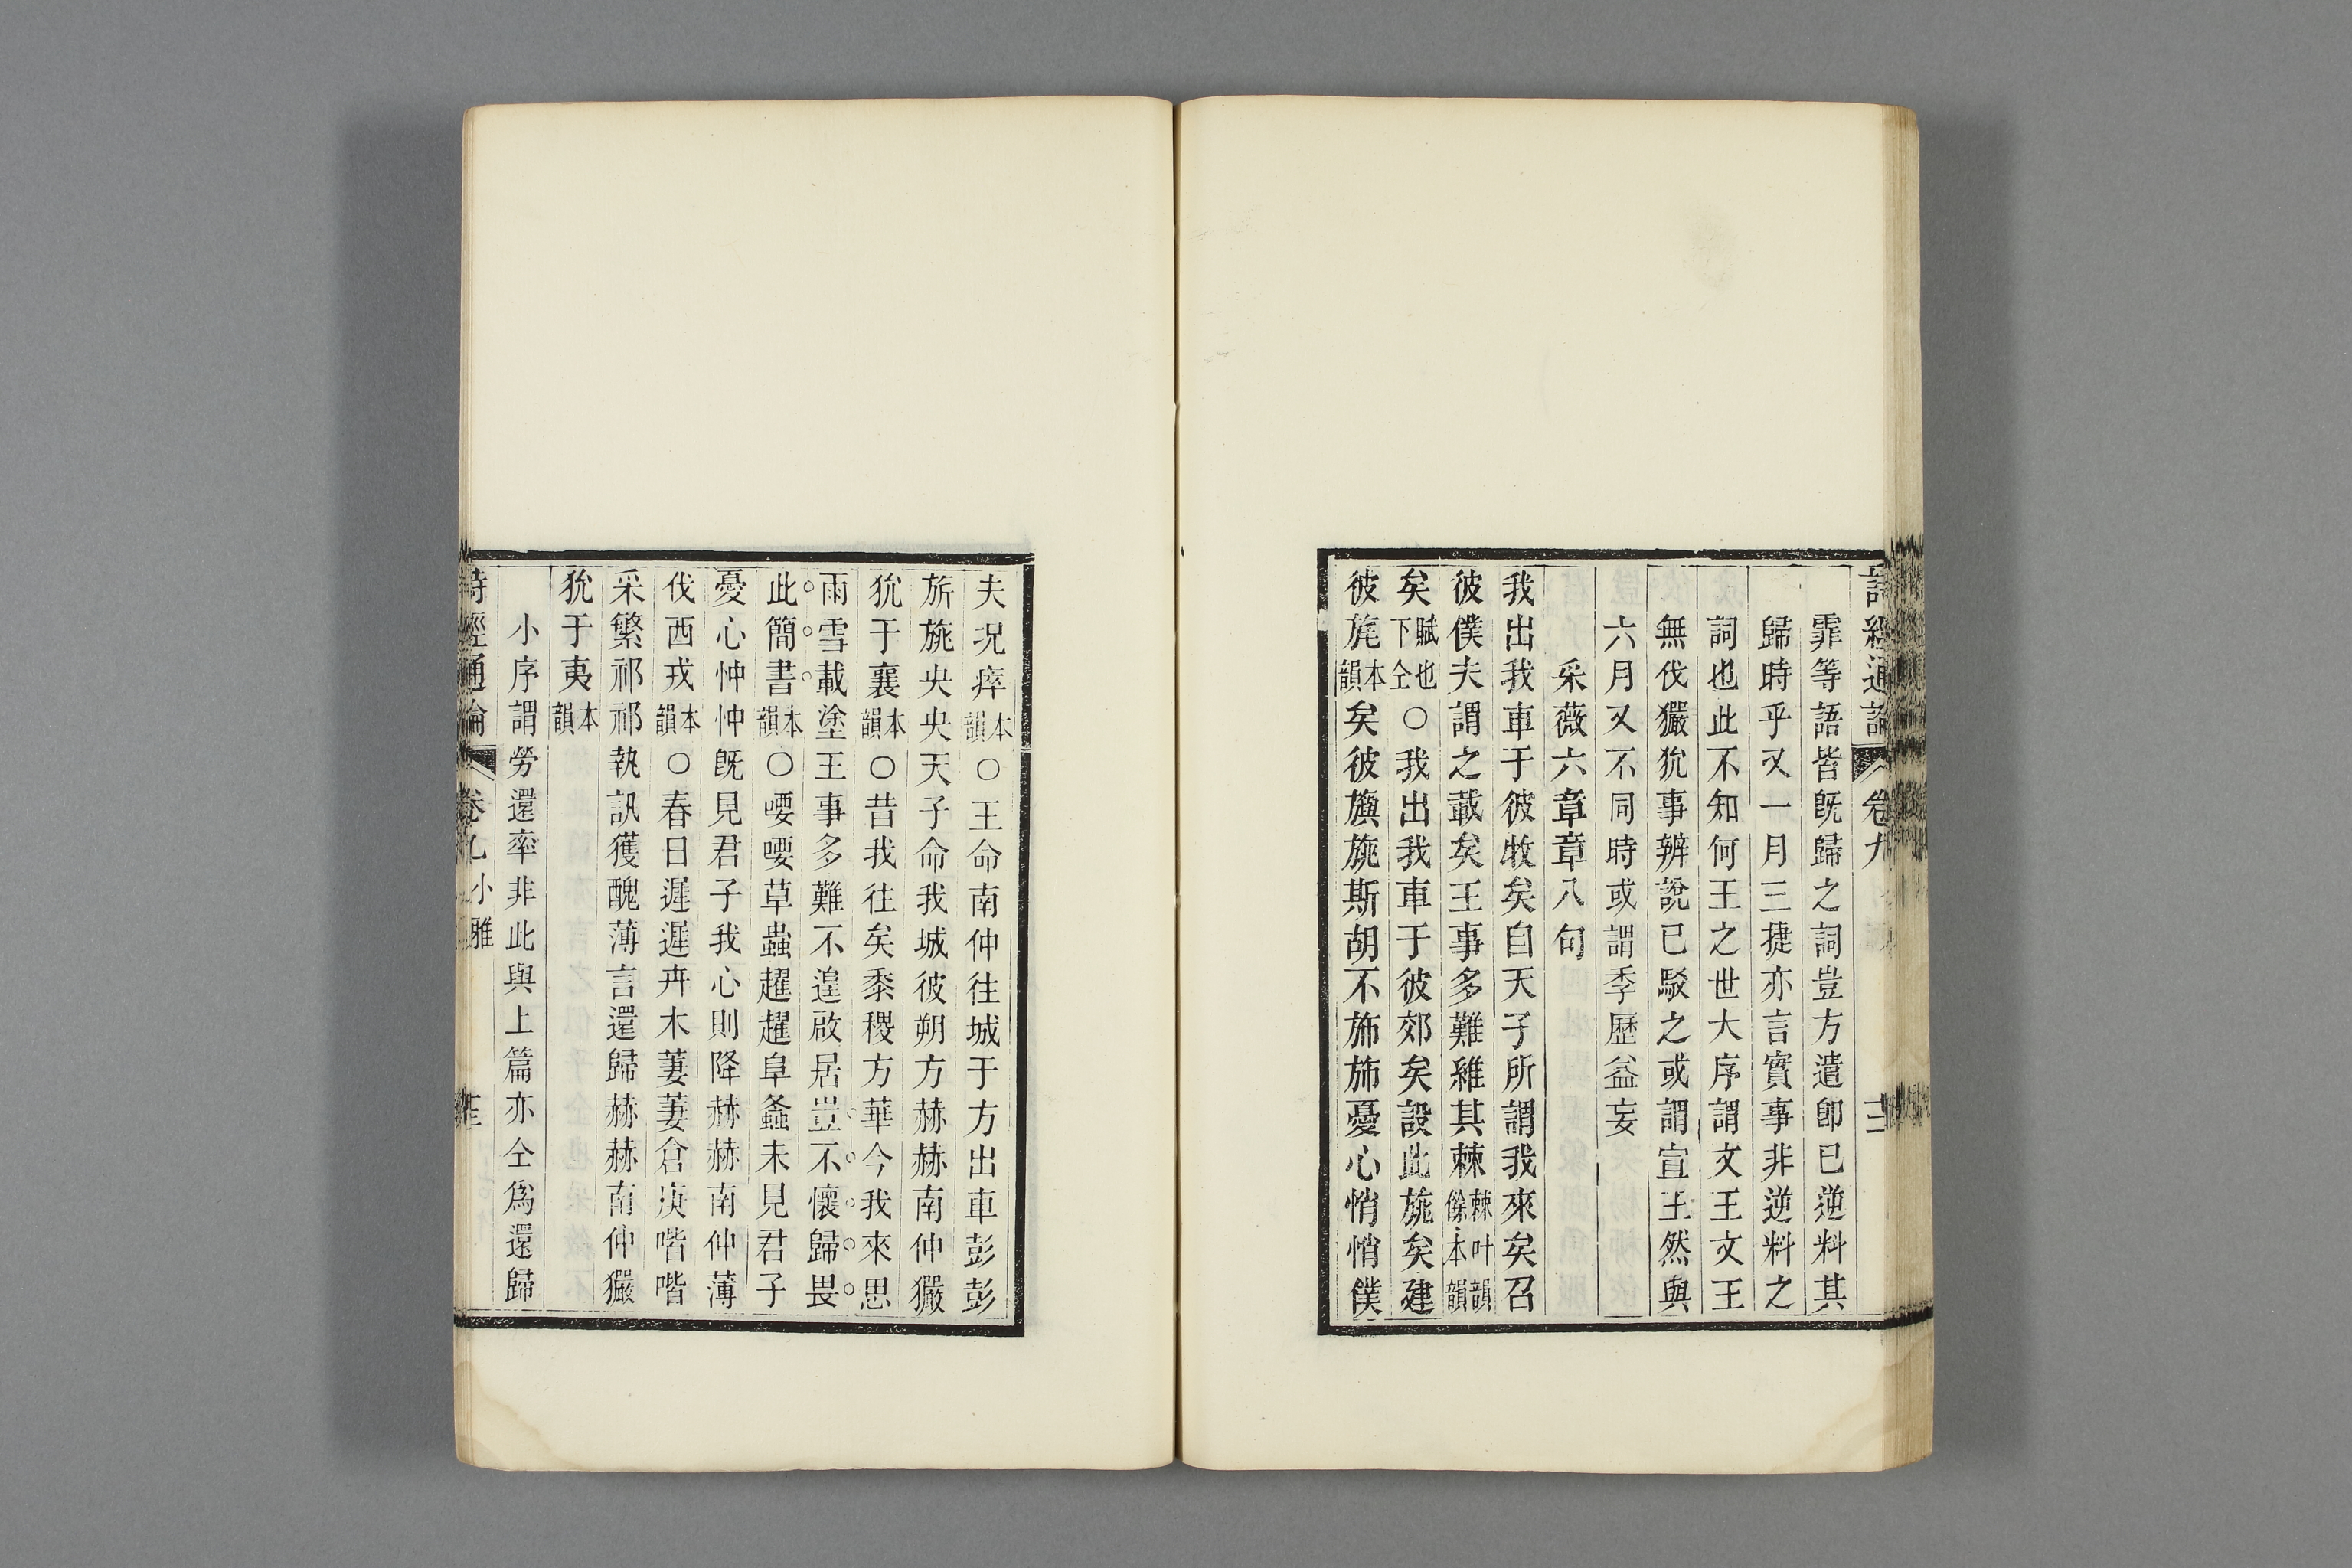 詩經通論 卷九
霏等語皆旣歸之詞豈方遣卽已逆料其
歸時乎又一月三捷亦言實事非逆料之
詞也此不知何王之世大序謂文王文王
無伐玁狁事辨說已駁之或謂宣王然與
六月又不同時或謂季歷益妄
采薇六章章八句
我出我車于彼牧矣自天子所謂我來矣召
彼僕夫謂之載矣王事多難維其棘棘叶韻餘本韻
矣賦也下仝○我出我車于彼郊矣設此旐矣建
彼旄本韻矣彼旟旐斯胡不旆旆憂心悄悄僕
夫況瘁本韻○王命南仲往城于方出車彭彭
旂旐央央天子命我城彼朔方赫赫南仲玁
狁于襄本韻○昔我往矣黍稷方華今我來思
雨雪載塗王事多難不遑啟居豈不懷歸畏
此簡書本韻○喓喓草蟲趯趯阜螽未見君子
憂心忡忡旣見君子我心則降赫赫南仲薄
伐西戎本韻○春日遲遲卉木萋萋倉庚喈喈
采蘩祁祁執訊獲醜薄言還歸赫赫南仲玁
狁于夷本韻
小序謂勞還率非此與上篇亦仝爲還歸
詩經通論 卷九 小雅